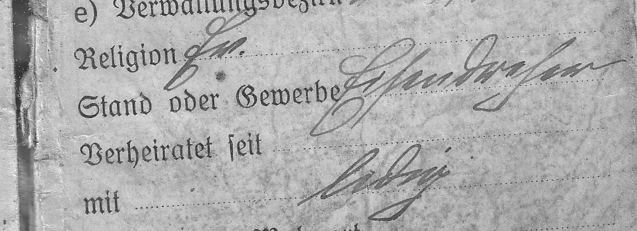 e) Verwaltungsbezirk
Religion Ev.
Stand oder Gewerbe Eisendreher
Verheiratet seit
mit ledig